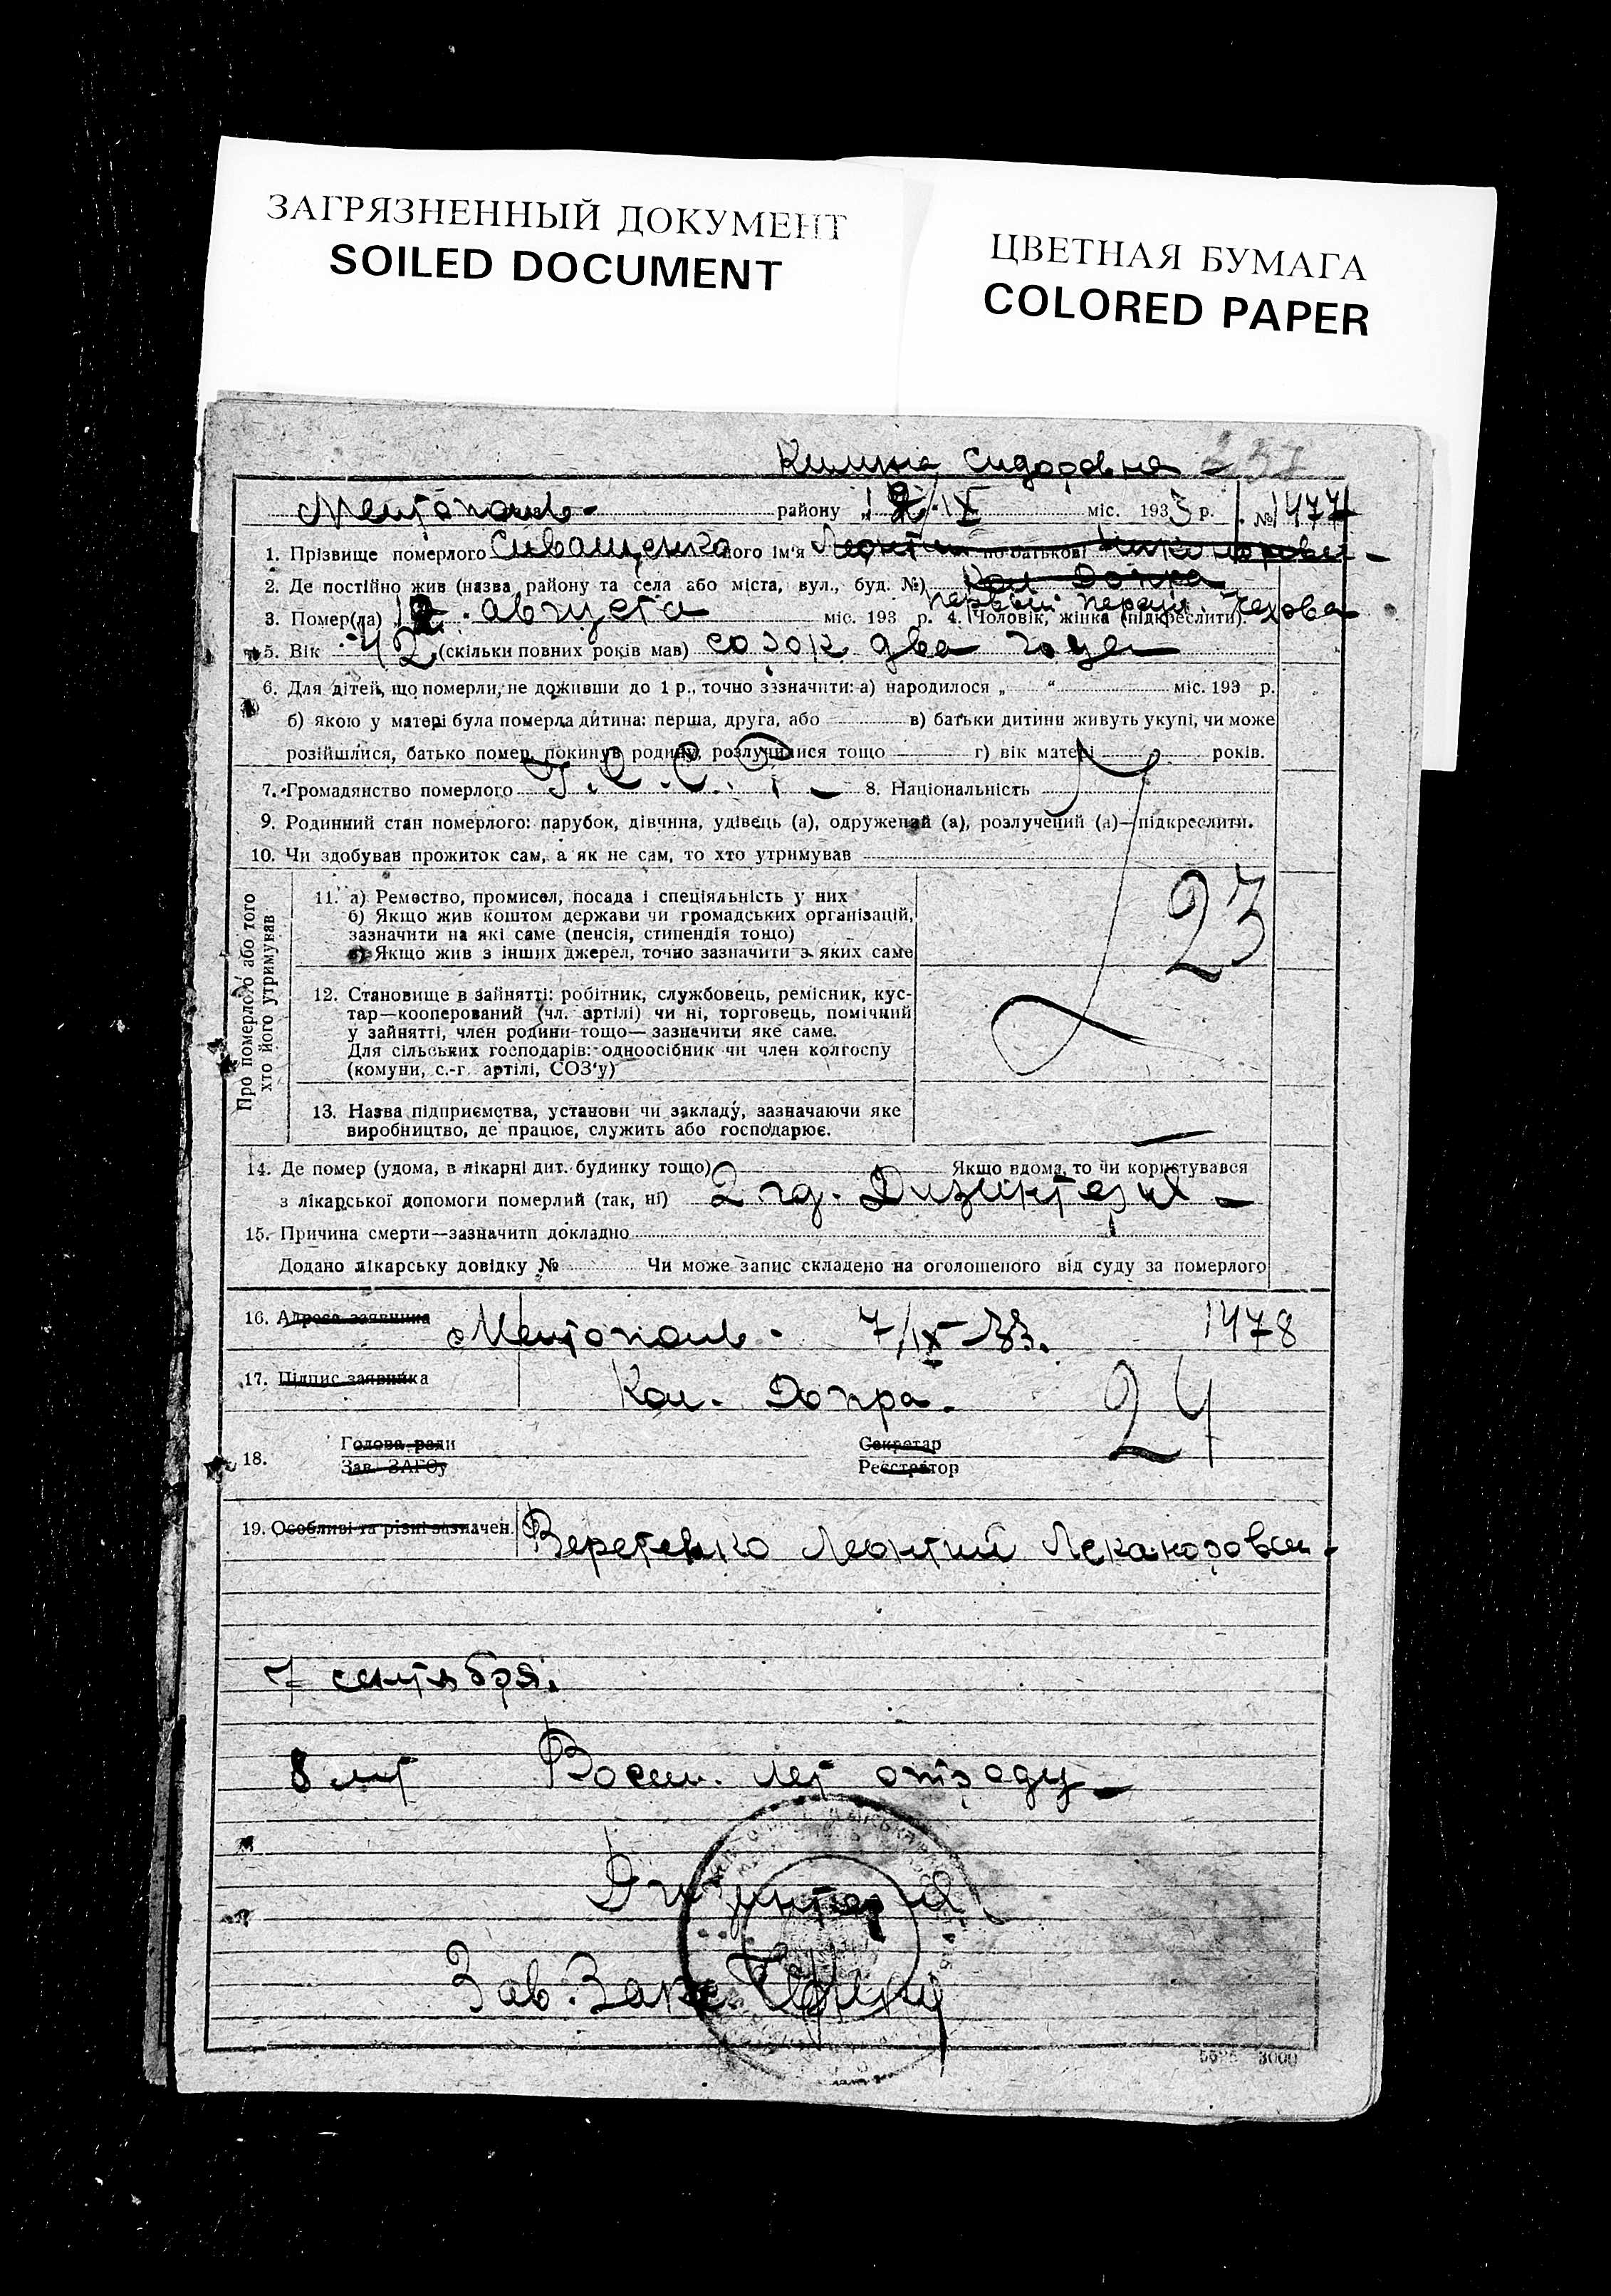 ЗАГРЯЗНЕННЫЙ ДОКУМЕНТ
SOILED DOCUMENT
ЦВЕТНАЯ БУМАГА
COLORED PAPER
Сидоровна 237
Мелітополь району міс. 1933 р. № 1477
1. Прізвище померлого Сиващенко його ім'я Леонтий по-батькові
2. Де постійно жив (назва району та села або міста, вул., буд. №) Кол Допра
первый Чехова
3. Помер(ла) августа міс. 193 р. 4. Чоловік, жінка (підкреслити).
5. Вік 42 (скільки повних років мав) сорок два года
6. Для дітей, що померли, не доживши до 1 р., точно зазначити: а) народилося „ “ міс. 193 р.
б) якою у матері була померла дитина: перша, друга, або в) батьки дитини живуть укупі, чи може
розійшлися, батько помер, покинув родину, розлучилися тощо г) вік матері років.
7. Громадянство померлого 8. Національність
9. Родинний стан померлого: парубок, дівчина, удівець (а), одружений (а), розлучений (а)—підкреслити.
10. Чи здобував прожиток сам, а як не сам, то хто утримував
Про померлого або того
хто його утримував
11. а) Ремество, промисел, посада і спеціяльність у них
б) Якщо жив коштом держави чи громадських організацій,
зазначити на які саме (пенсія, стипендія тощо)
в) Якщо жив з інших джерел, точно зазначити з яких саме
23
12. Становище в зайнятті: робітник, службовець, ремісник, кус-
тар—кооперований (чл. артілі) чи ні, торговець, помічний
у зайнятті, член родини тощо—зазначити яке саме.
Для сільських господарів: одноосібник чи член колгоспу
(комуни, с.-г. артілі, СОЗ'у)
13. Назва підприємства, установи чи закладу, зазначаючи яке
виробництво, де працює, служить або господарює.
14. Де помер (удома, в лікарні дит. будинку тощо) Якщо вдома, то чи користувався
з лікарської допомоги померлий (так, ні) 2 гд. Дизинтерия
15. Причина смерти—зазначити докладно
Додано лікарську довідку № Чи може запис складено на оголошеного від суду за померлого
16. Адреса заявника Мелітополь. 7/IX-33. 1478
17. Підпис заявника Кол. Допра. 24
18. Голова ради Секретар
Зав. ЗАГСу Реєстратор
19. Особливі та різні зазначен. Веретенко Леонтий
7 сентября.
8 лет Восем. лет отроду
Дизинтерия
Зав. Загс
3000